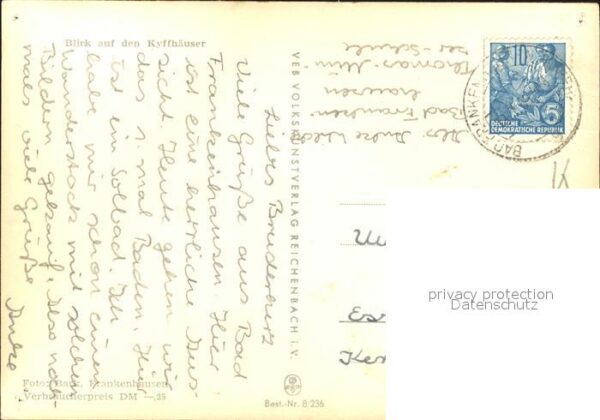 Blick auf den Kyffhäuser
Liebes Bruderherz
Viele Grüße aus Bad
Frankenhausen. Hier
ist eine herrliche Aus-
sicht. Heute gehen wir
das 1. mal Baden. Hier
ist ein Solbad. Ich
habe mir schon einen
Wanderstock mit solchen
Bildern gekauft. Also noch-
mals viele Grüße
Anke
Foto: Bark, Frankenhausen
Verbraucherpreis DM —,25
VEB VOLKSKUNSTVERLAG REICHENBACH i. V.
Best.-Nr. 8/236
Abs. Anke
Bad Franken
hausen
Thomas-Mün
zer-Schule
10
5
DEUTSCHE
DEMOKRATISCHE REPUBLIK
BAD FRANKEN
privacy protection
Datenschutz